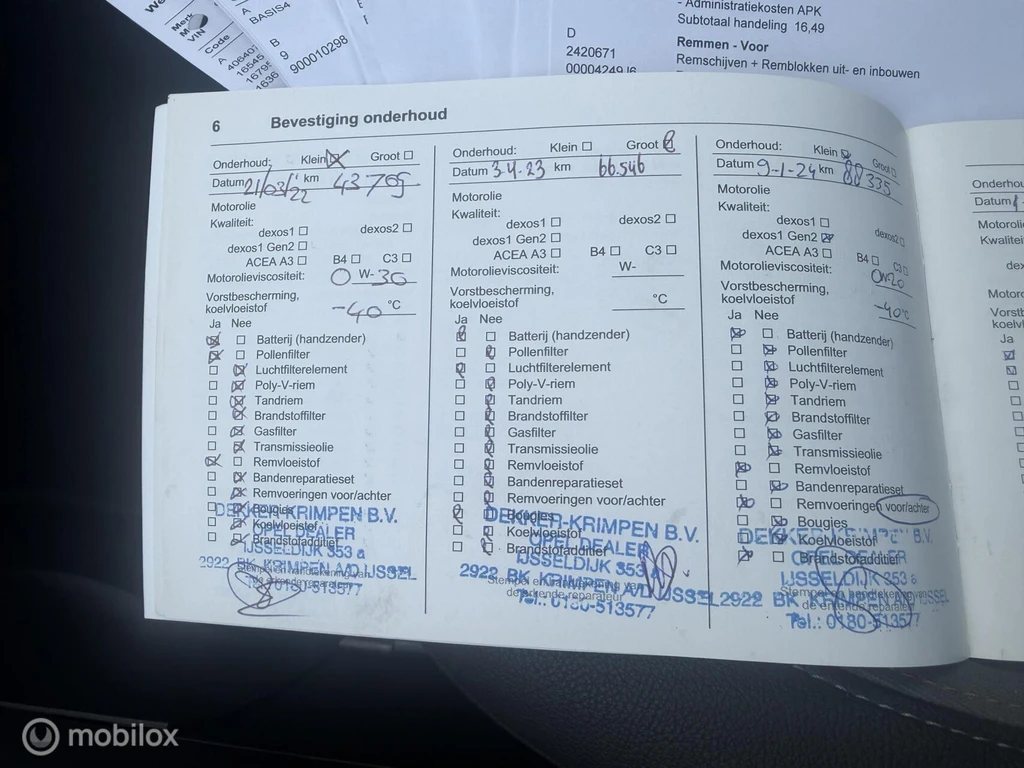 We
Merk
VIN
Code
A
BASIS4
A
406407
16545
1679
1636
B
9
900010298
D
2420671
- Administratiekosten APK
Subtotaal handeling 16,49
Remmen - Voor
Remschijven + Remblokken uit- en inbouwen
6 Bevestiging onderhoud
Onderhoud: Klein Groot
Datum 21/03/22 km 43709
Motorolie
Kwaliteit:
dexos1 dexos2
dexos1 Gen2
ACEA A3 B4 C3
Motorolieviscositeit: 0 W-30
Vorstbescherming,
koelvloeistof -40 °C
Ja Nee
Batterij (handzender)
Pollenfilter
Luchtfilterelement
Poly-V-riem
Tandriem
Brandstoffilter
Gasfilter
Transmissieolie
Remvloeistof
Bandenreparatieset
Remvoeringen voor/achter
Bougies
Koelvloeistof
Brandstofadditief
DEKKER-KRIMPEN B.V.
OPEL DEALER
IJSSELDIJK 353 a
2922 BK KRIMPEN A/D IJSSEL
Tel.: 0180-513577
Onderhoud: Klein Groot
Datum 3-4-23 km 66.546
Motorolie
Kwaliteit:
dexos1 dexos2
dexos1 Gen2
ACEA A3 B4 C3
Motorolieviscositeit: W-
Vorstbescherming,
koelvloeistof °C
Ja Nee
Batterij (handzender)
Pollenfilter
Luchtfilterelement
Poly-V-riem
Tandriem
Brandstoffilter
Gasfilter
Transmissieolie
Remvloeistof
Bandenreparatieset
Remvoeringen voor/achter
Bougies
Koelvloeistof
Brandstofadditief
DEKKER-KRIMPEN B.V.
OPEL DEALER
IJSSELDIJK 353 a
2922 BK KRIMPEN A/D IJSSEL
Stempel en handtekening van
de erkende reparateur
Tel.: 0180-513577
Onderhoud: Klein Groot
Datum 9-1-24 km 88335
Motorolie
Kwaliteit:
dexos1 dexos2
dexos1 Gen2
ACEA A3 B4 C3
Motorolieviscositeit: 0W-20
Vorstbescherming,
koelvloeistof -40 °C
Ja Nee
Batterij (handzender)
Pollenfilter
Luchtfilterelement
Poly-V-riem
Tandriem
Brandstoffilter
Gasfilter
Transmissieolie
Remvloeistof
Bandenreparatieset
Remvoeringen voor/achter
Bougies
Koelvloeistof
Brandstofadditief
DEKKER-KRIMPEN B.V.
OPEL DEALER
IJSSELDIJK 353 a
Stempel en handtekening van
2922 BK KRIMPEN A/D IJSSEL
de erkende reparateur
Tel.: 0180-513577
Onderhou
Datum
Motoroli
Kwaliteit
dex
Motoro
Vorstb
koelvl
Ja
mobilox